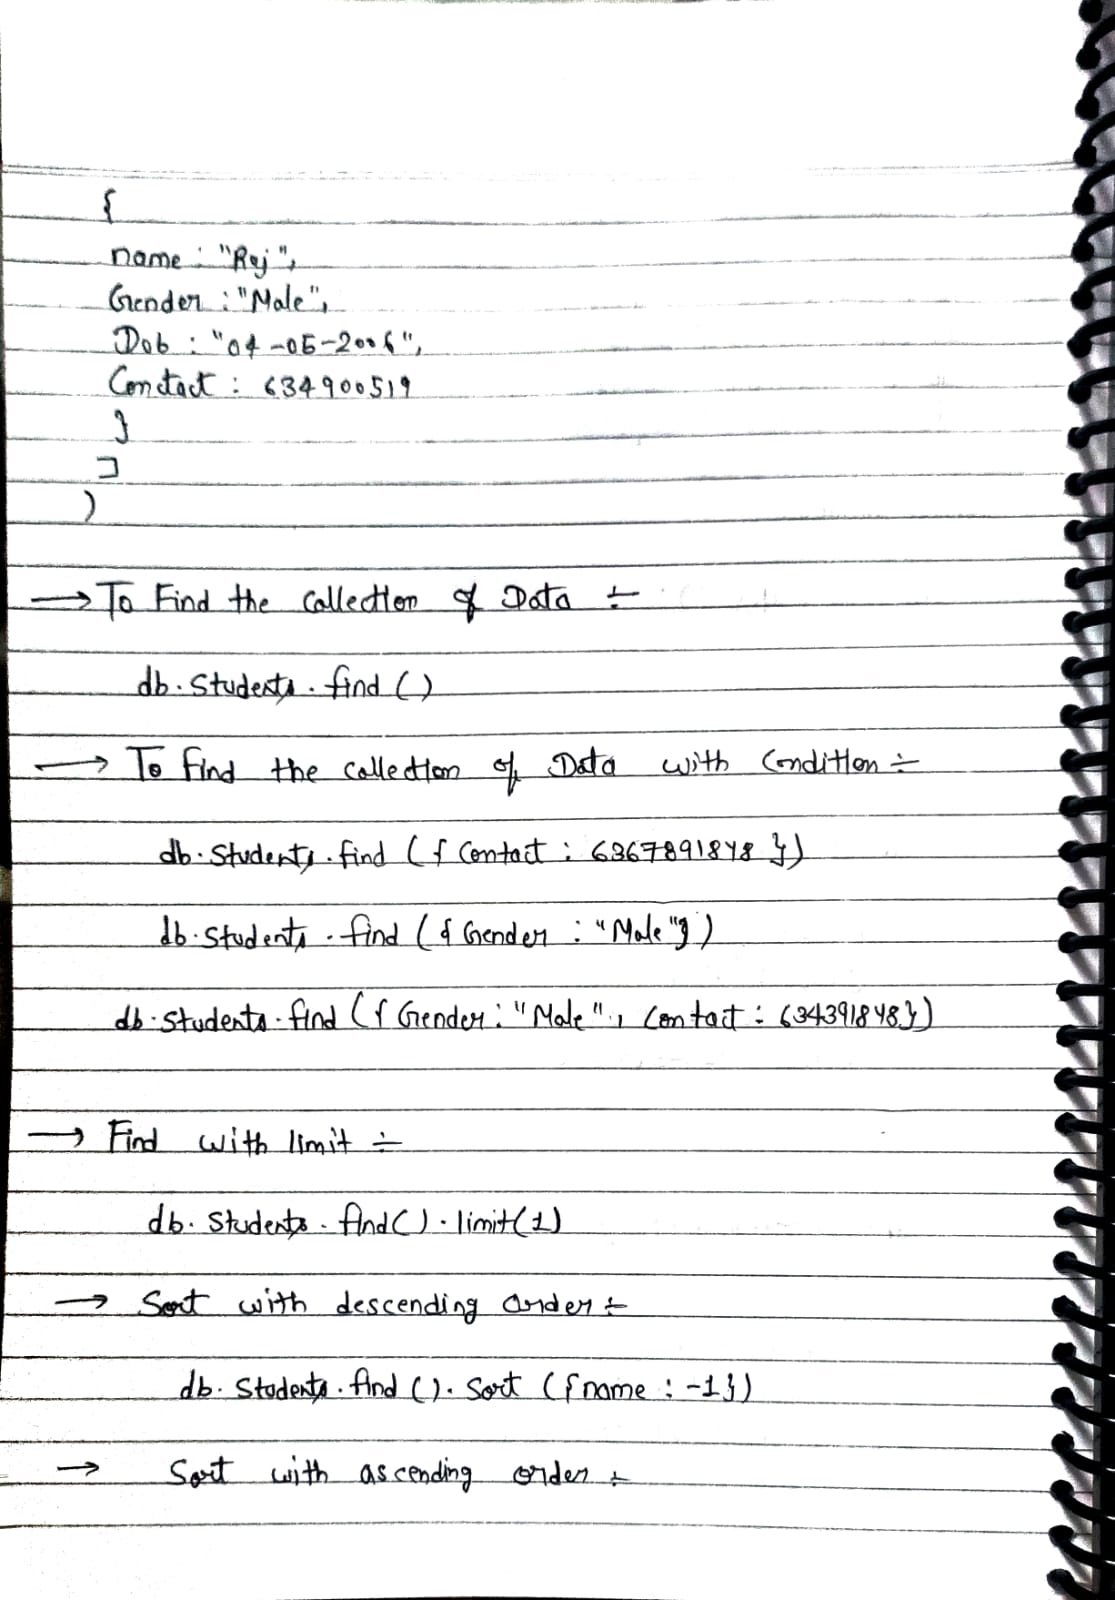 {
name : "Raj",
Gender : "Male",
Dob : "04-05-2006",
Contact : 634900519
}
]
)
→ To Find the Collection of Data ÷
db.Students.find()
→ To find the collection of Data with Condition ÷
db.Students.find({Contact : 6367891848})
db.Students.find({Gender : "Male"})
db.Students.find({Gender : "Male", Contact : 634391848})
→ Find with limit ÷
db.Students.find().limit(1)
→ Sort with descending order ÷
db.Students.find().Sort({name : -1})
→ Sort with ascending order ÷